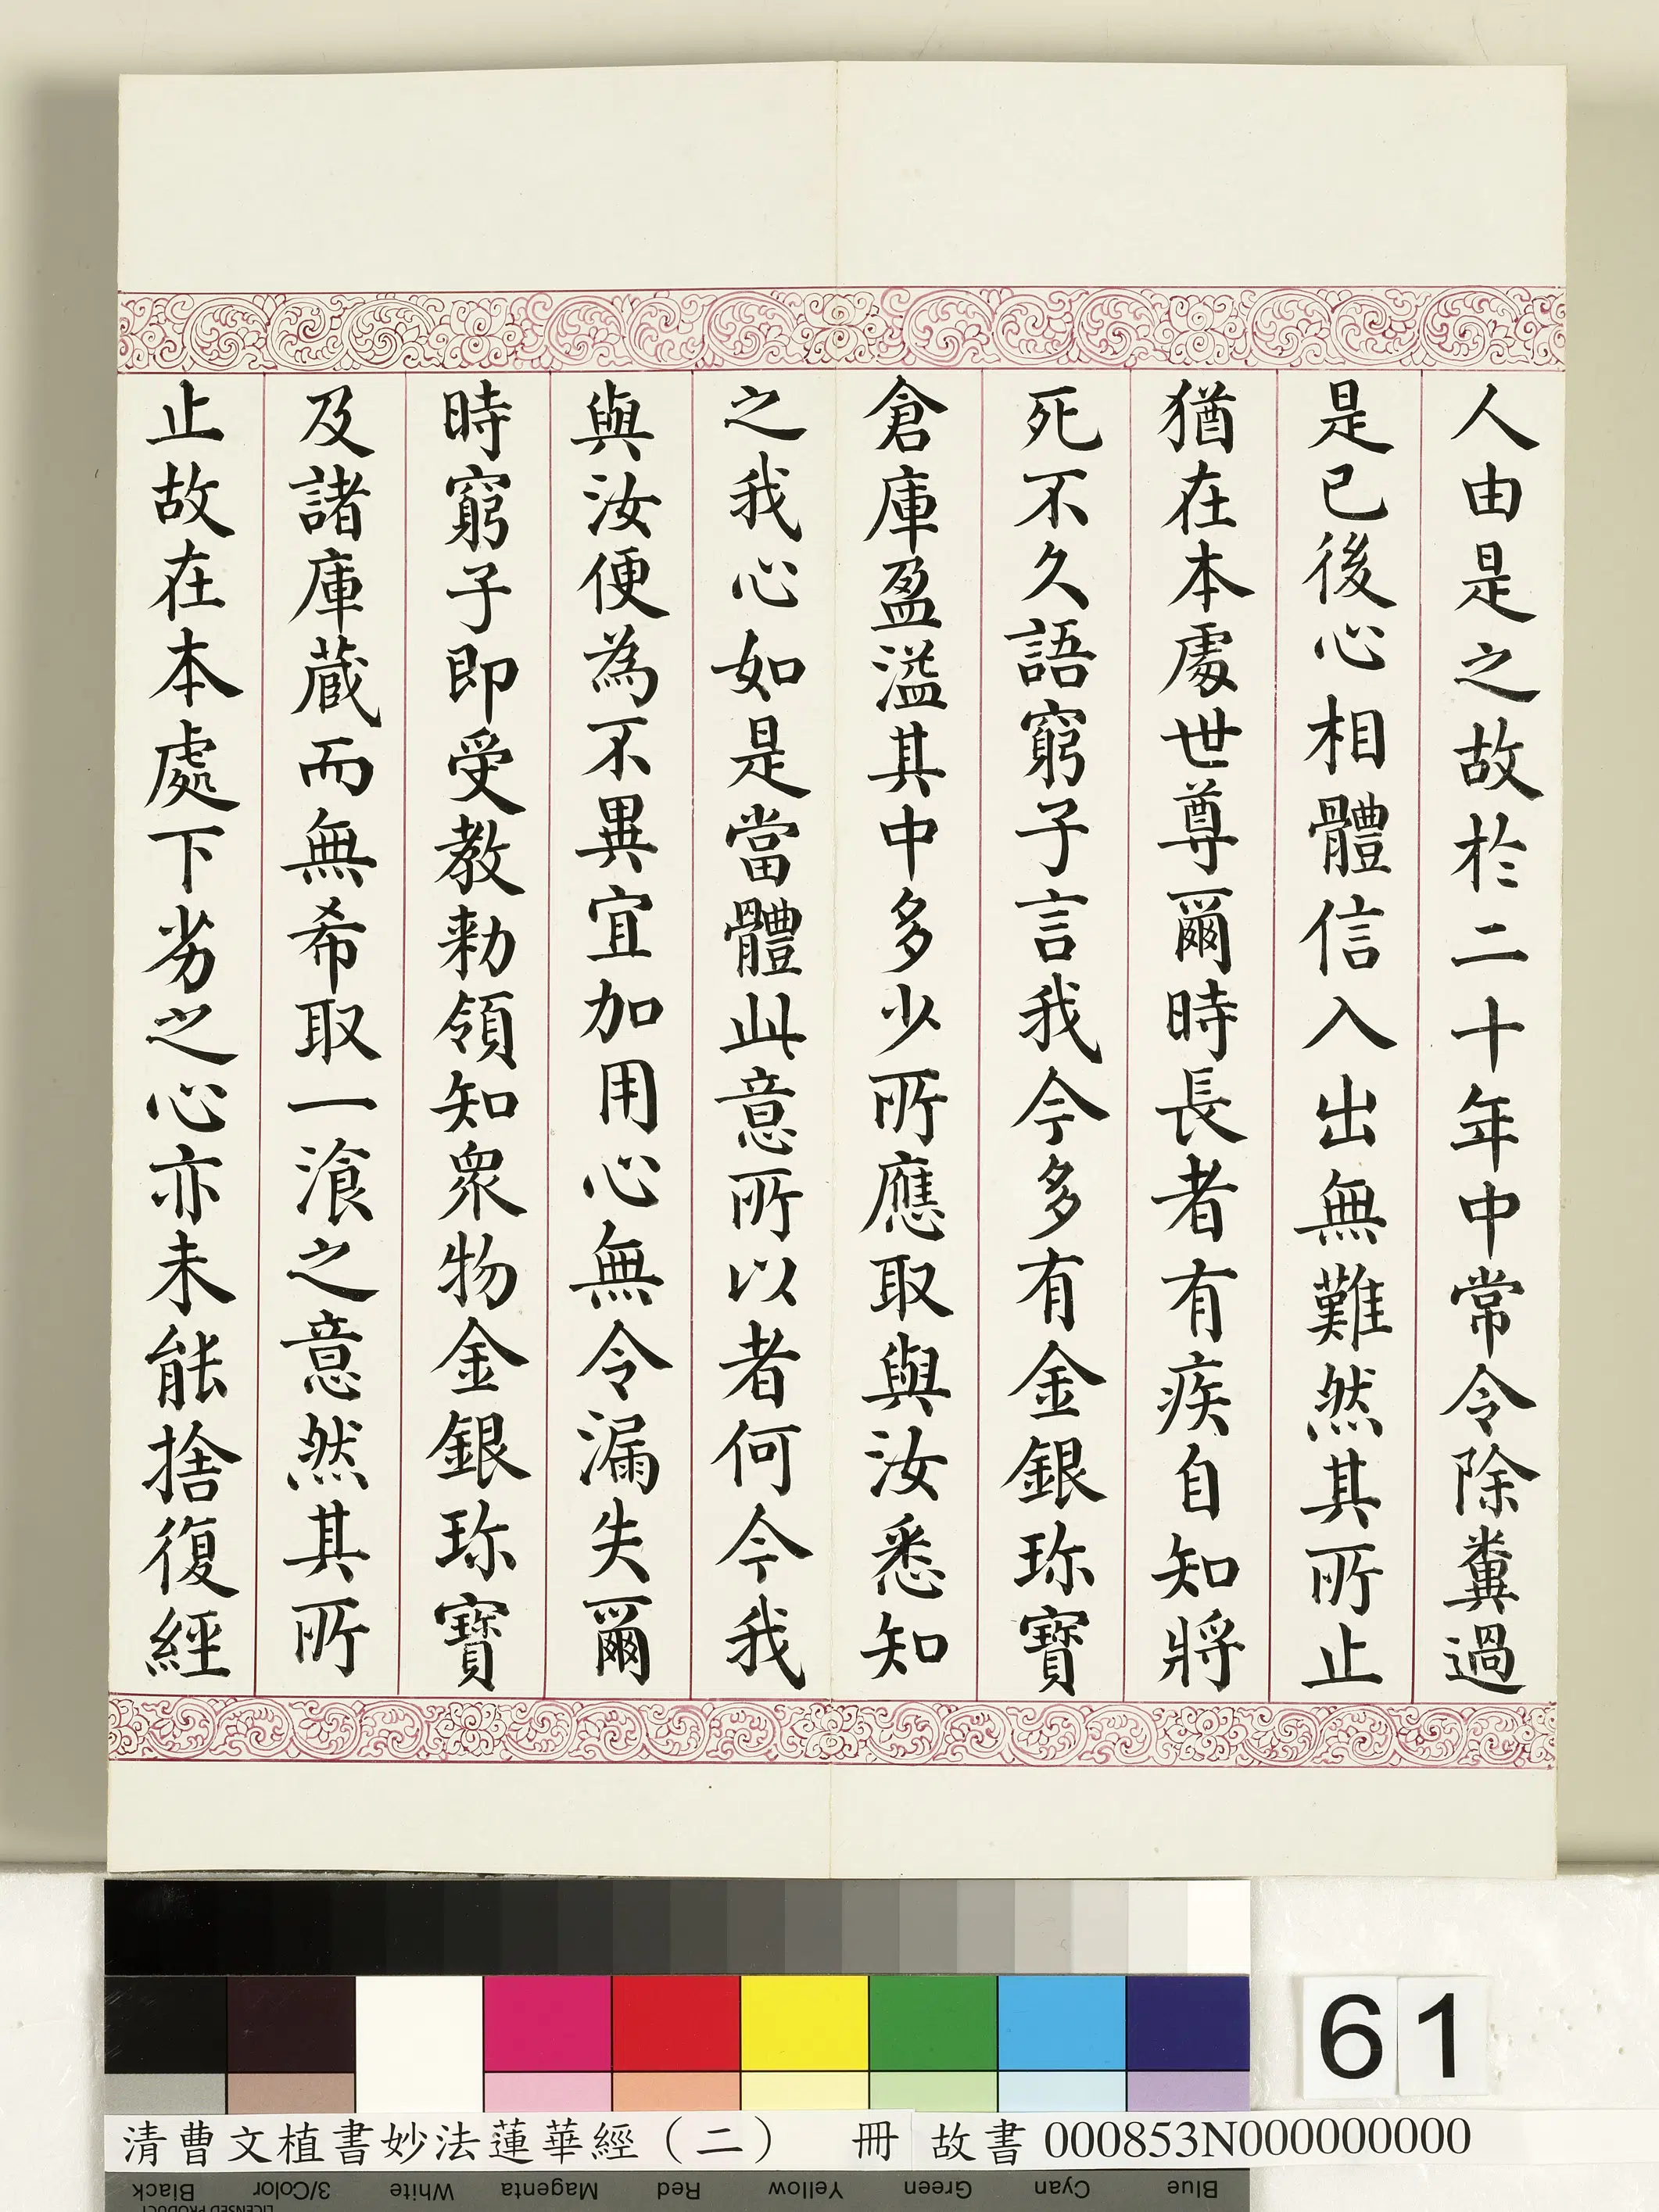 人由是之故於二十年中常令除糞過
是已後心相體信入出無難然其所止
猶在本處世尊爾時長者有疾自知將
死不久語窮子言我今多有金銀珎寶
倉庫盈溢其中多少所應取與汝悉知
之我心如是當體此意所以者何今我
與汝便為不異宜加用心無令漏失爾
時窮子即受教勅領知衆物金銀珎寶
及諸庫蔵而無希取一飡之意然其所
止故在本處下劣之心亦未能捨復經
61
清曹文植書妙法蓮華經（二） 冊 故書 000853N000000000
Black 3/Color White Magenta Red Yellow Green Cyan Blue
LICENSED PRODUCT